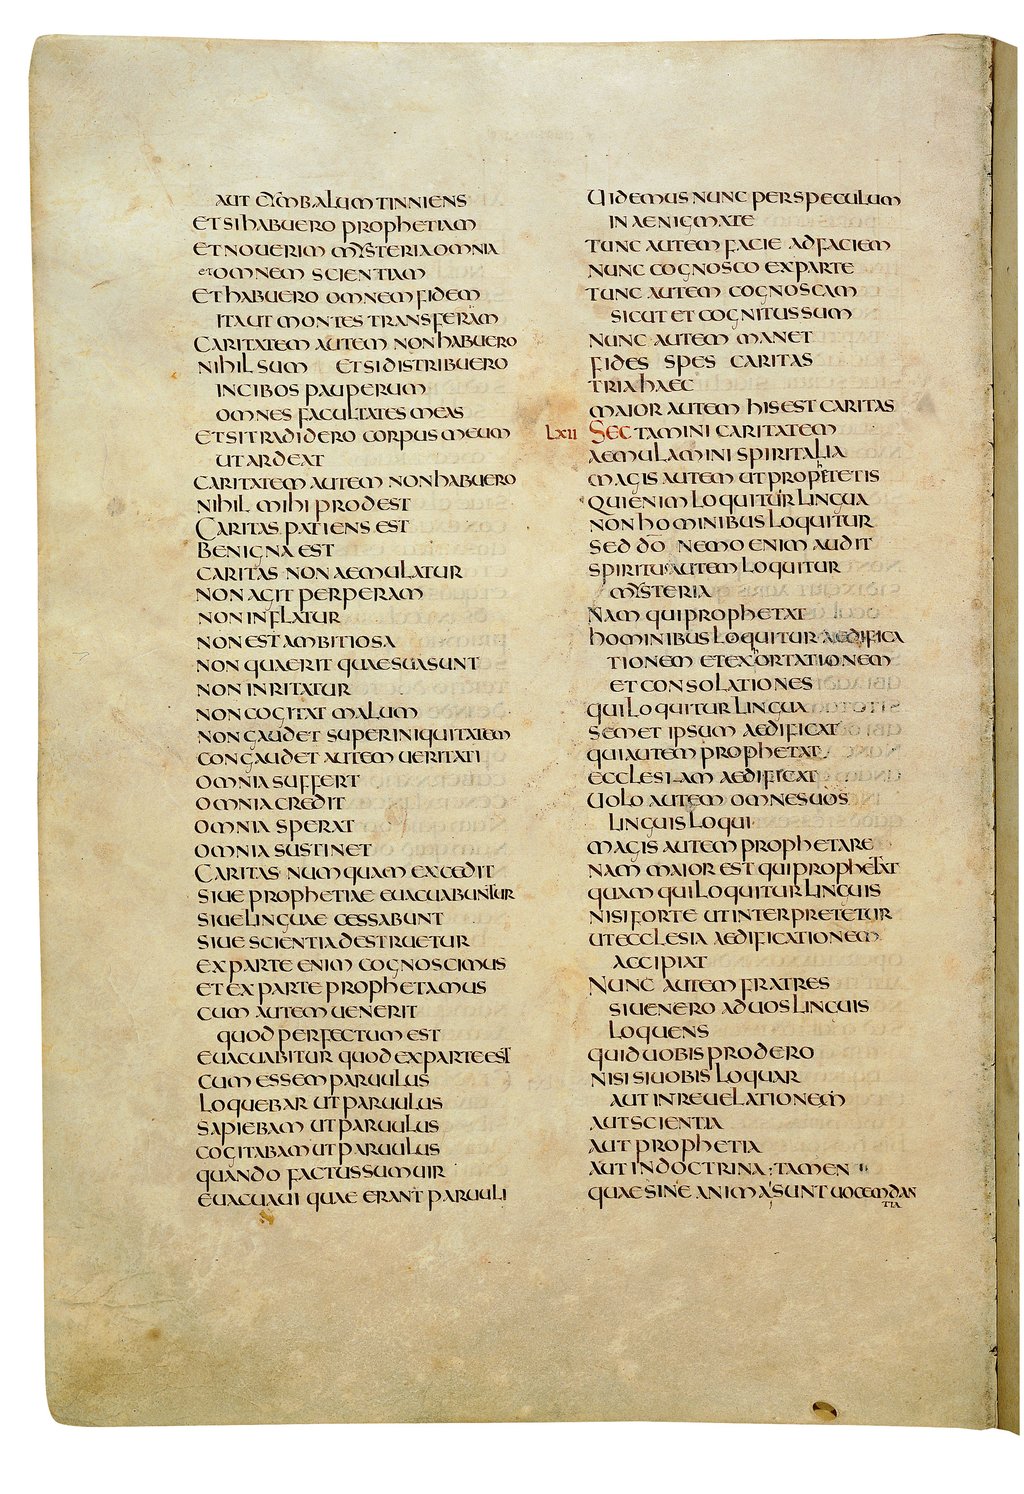 AUT CYMBALUM TINNIENS
ET SI HABUERO PROPHETIAM
ET NOUERIM MYSTERIA OMNIA
et OMNEM SCIENTIAM
ET HABUERO OMNEM FIDEM
ITA UT MONTES TRANSFERAM
CARITATEM AUTEM NON HABUERO
NIHIL SUM ET SI DISTRIBUERO
IN CIBOS PAUPERUM
OMNES FACULTATES MEAS
ET SI TRADIDERO CORPUS MEUM
UT ARDEAT
CARITATEM AUTEM NON HABUERO
NIHIL MIHI PRODEST
CARITAS PATIENS EST
BENIGNA EST
CARITAS NON AEMULATUR
NON AGIT PERPERAM
NON INFLATUR
NON EST AMBITIOSA
NON QUAERIT QUAE SUA SUNT
NON INRITATUR
NON COGITAT MALUM
NON GAUDET SUPER INIQUITATEM
CONGAUDET AUTEM UERITATI
OMNIA SUFFERT
OMNIA CREDIT
OMNIA SPERAT
OMNIA SUSTINET
CARITAS NUMQUAM EXCEDIT
SIUE PROPHETIAE EUACUABUNTUR
SIUE LINGUAE CESSABUNT
SIUE SCIENTIA DESTRUETUR
EX PARTE ENIM COGNOSCIMUS
ET EX PARTE PROPHETAMUS
CUM AUTEM UENERIT
QUOD PERFECTUM EST
EUACUABITUR QUOD EX PARTE EST
CUM ESSEM PARUULUS
LOQUEBAR UT PARUULUS
SAPIEBAM UT PARUULUS
COGITABAM UT PARUULUS
QUANDO FACTUS SUM UIR
EUACUAUI QUAE ERANT PARUULI
UIDEMUS NUNC PER SPECULUM
IN AENIGMATE
TUNC AUTEM FACIE AD FACIEM
NUNC COGNOSCO EX PARTE
TUNC AUTEM COGNOSCAM
SICUT ET COGNITUS SUM
NUNC AUTEM MANET
FIDES SPES CARITAS
TRIA HAEC
MAIOR AUTEM HIS EST CARITAS
LXII SECTAMINI CARITATEM
AEMULAMINI SPIRITALIA
MAGIS AUTEM UT PROPHETETIS
QUI ENIM LOQUITUR LINGUA
NON HOMINIBUS LOQUITUR
SED DŌ NEMO ENIM AUDIT
SPIRITU AUTEM LOQUITUR
MYSTERIA
NAM QUI PROPHETAT
HOMINIBUS LOQUITUR AEDIFICA
TIONEM ET EXHORTATIONEM
ET CONSOLATIONES
QUI LOQUITUR LINGUA
SEMET IPSUM AEDIFICAT
QUI AUTEM PROPHETAT
ECCLESIAM AEDIFICAT
UOLO AUTEM OMNES UOS
LINGUIS LOQUI
MAGIS AUTEM PROPHETARE
NAM MAIOR EST QUI PROPHETAT
QUAM QUI LOQUITUR LINGUIS
NISI FORTE UT INTERPRETETUR
UT ECCLESIA AEDIFICATIONEM
ACCIPIAT
NUNC AUTEM FRATRES
SI UENERO AD UOS LINGUIS
LOQUENS
QUID UOBIS PRODERO
NISI SI UOBIS LOQUAR
AUT IN REUELATIONEM
AUT SCIENTIA
AUT PROPHETIA
AUT IN DOCTRINA; TAMEN
QUAE SINE ANIMA SUNT UOCEM DAN
TIA